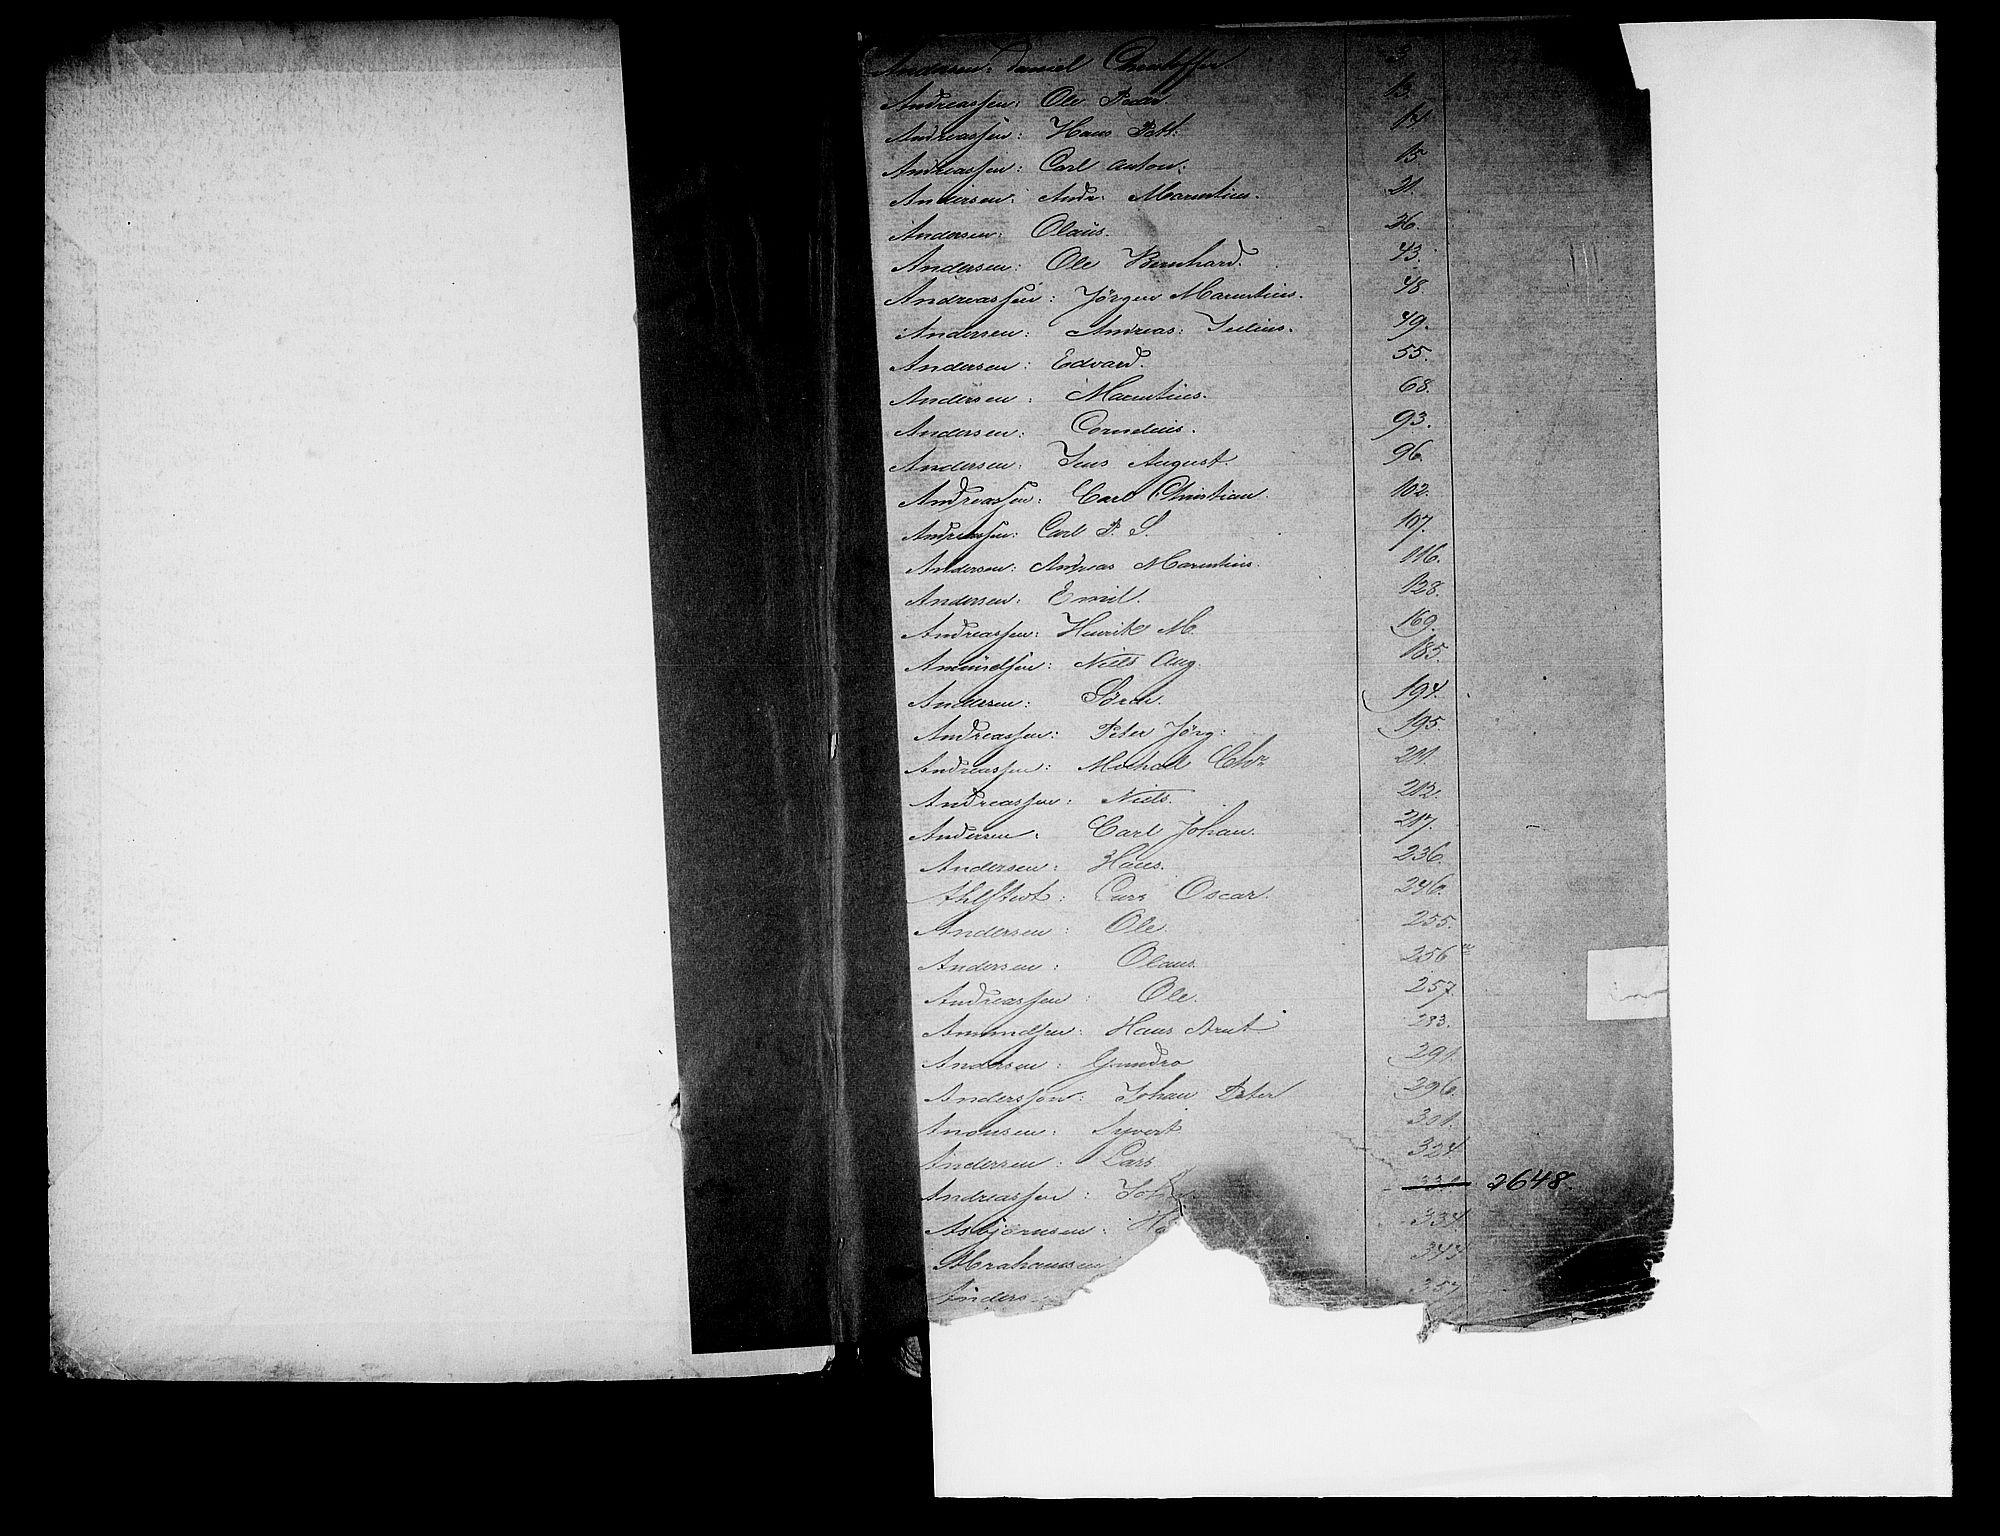 Andersen: Daniel Christoffer 3
Andreassen: Ole Peder. 13.
Andreassen: Hans Pett: 14.
Andreassen: Carl Anton: 15.
Andersen: Andr: Marentius. 21.
Andersen: Olaüs. 36.
Andersen: Ole Bernhard. 43.
Andreassen: Jörgen Marentius. 48.
Andersen: Andreas: Julius. 49.
Andersen: Edvard. 55.
Andersen: Marentius. 68.
Andersen: Cornelius. 93.
Andersen: Jens August. 96.
Andreassen: Carl Christian. 102.
Andreassen: Carl P. S. 107.
Andersen: Andreas Marentius. 116.
Andersen: Emil. 128.
Andreassen: Henrik M. 169.
Amundsen: Niels Aug. 185.
Andersen: Sören. 194.
Andreassen: Peter Jörg: 195.
Andreassen: Michael Chr. 211.
Andreassen: Niels. 212.
Andersen: Carl Johan. 217.
Andersen: Hans. 236.
Ahlstedt: Carl Oscar. 246.
Andersen: Ole. 255.
Andersen: Olaus. 256
Andreassen: Ole. 257
Amundsen: Hans Arnt 283.
Andersen: Gundro 291.
Anderssön: Johan Peter 296.
Anonsen: Syvert 301.
Andersen: Lars 324
Andreassen: Joh 331 2648.
Asbjörnsen: Ha 334
Abrahamsen 343
Anders 357